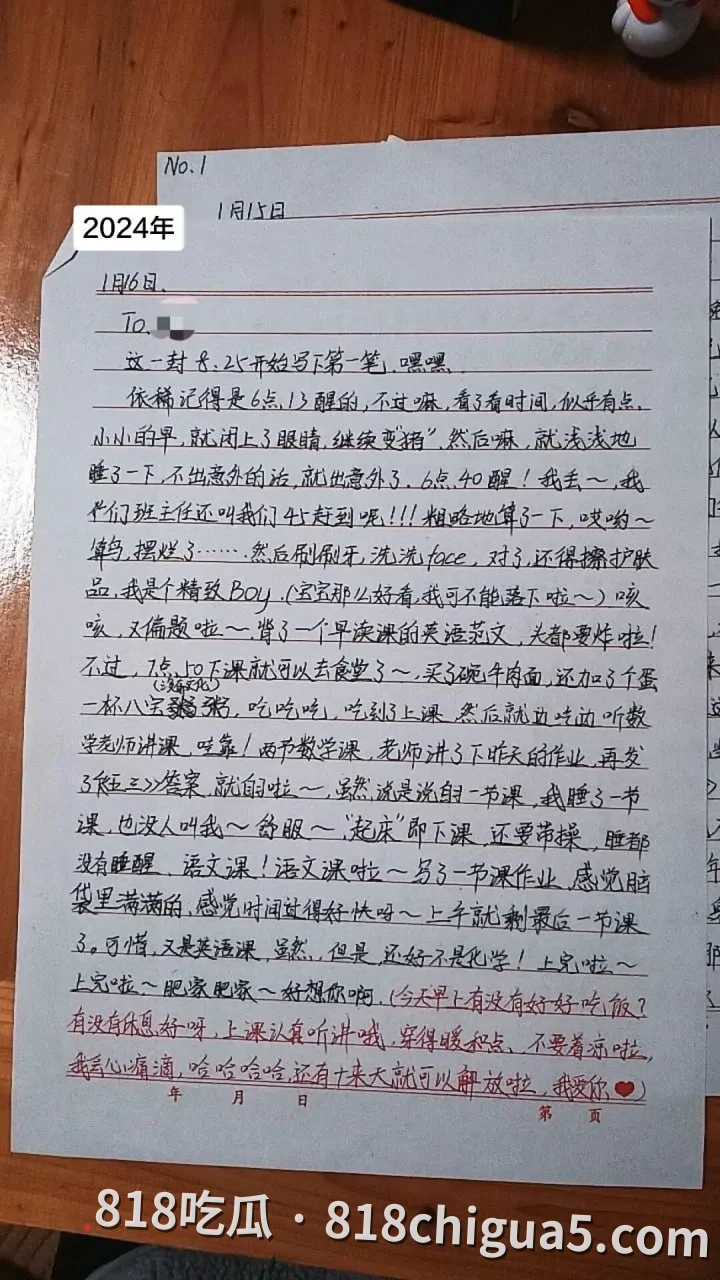 No.1
1月15日
2024年
1月16日.
To.
这一封 8.25开始写下第一笔.嘿嘿.
依稀记得是6点13醒的,不过嘛,看了看时间,似乎有点
小小的早,就闭上了眼睛,继续变"猪".然后嘛,就浅浅地
睡了一下,不出意外的话,就出意外了.6点40醒!我丢~,我
们班主任还叫我们45赶到呢!!!粗略地算了一下,哎哟~
算鸟,摆烂了……然后刷刷牙,洗洗face,对了,还得擦护肤
品,我是个精致Boy.(宝宝那么好看,我可不能落下啦~)咳
咳,又偏题啦~.背了一个早读课的英语范文,头都要炸啦!
不过,7点50下课就可以去食堂了~,买了碗牛肉面,还加了个蛋
(没有文化)
一杯八宝粥,吃吃吃,吃到了上课.然后就边吃边听数
学老师讲课,哇靠!两节数学课,老师讲了下昨天的作业,再发
了答案,就自习啦~,虽然说是说自习一节课,我睡了一节
课,也没人叫我~舒服~,"起床"即下课,还要带操,睡都
没有睡醒、语文课!语文课啦~写了一节课作业,感觉脑
袋里满满的,感觉时间过得好快呀~上午就剩最后一节课
了。可惜,又是英语课,虽然,但是,还好不是化学!上完啦~
上完啦~肥家肥家~好想你啊.(今天早上有没有好好吃饭?
有没有休息好呀,上课认真听讲哦,穿得暖和点、不要着凉啦,
我会心痛滴,哈哈哈哈,还有十来天就可以解放啦,我爱你❤)
年 月 日
第 页
818吃瓜·818chigua5.com